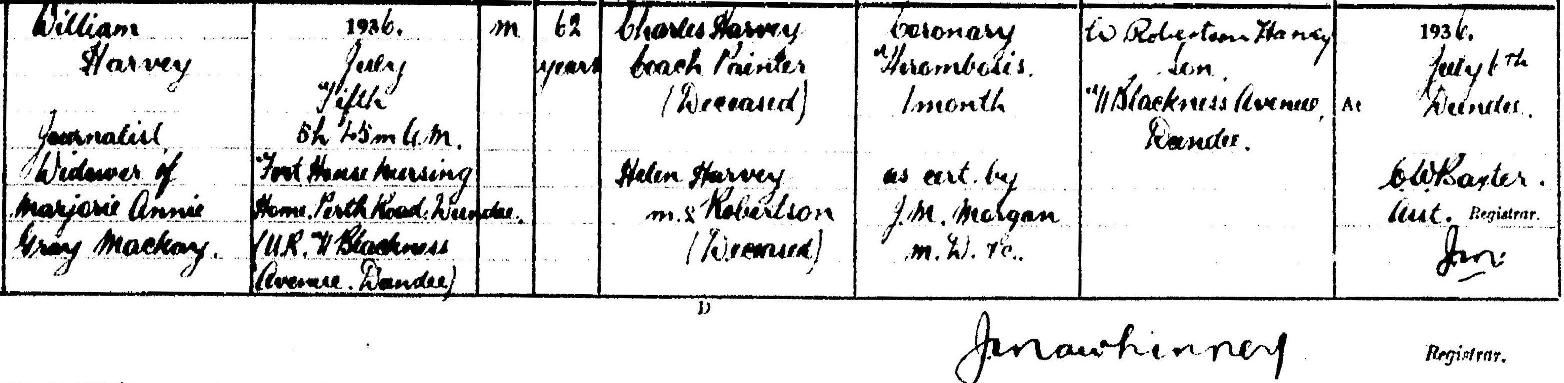 William
Harvey
Journalist
Widower of
Marjorie Annie
Gray Mackay.
1936.
July
Fifth
5h 45m A.M.
Fort House Nursing
Home, Perth Road, Dundee.
(U.R. 11 Blackness
Avenue. Dundee)
M
62
years
Charles Harvey
Coach Painter
(Deceased)
Helen Harvey
m.s Robertson
(Deceased)
Coronary
Thrombosis.
1 month
as cert. by
J. M. Morgan
M.D. &c.
W Robertson Harvey
Son.
11 Blackness Avenue,
Dundee.
1936.
July 6th
At Dundee.
C W Baxter.
Asst. Registrar.
D
Registrar.